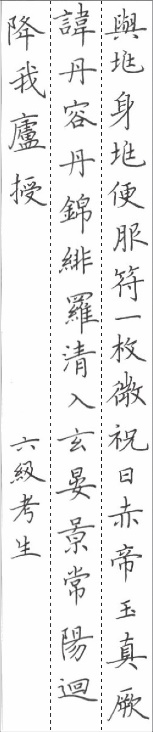 與地身地便服符一枚微祝曰赤帝玉真厥
諱丹容丹錦緋羅清入玄晏景常陽迴
降我廬授
六級考生